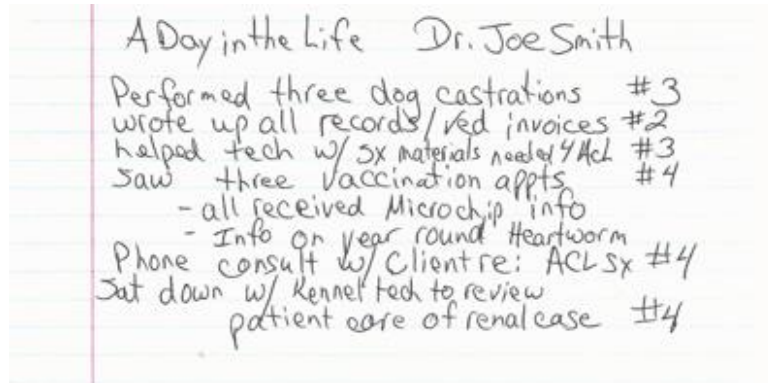 A Day in the Life Dr. Joe Smith
Performed three dog castrations #3
wrote up all records/ved invoices #2
helped tech w/ sx materials needed 4 ACL #3
Saw three vaccination appts #4
- all received Microchip info
- Info on year round Heartworm
Phone consult w/ Client re: ACL Sx #4
Sat down w/ Kennel tech to review
patient care of renal case #4